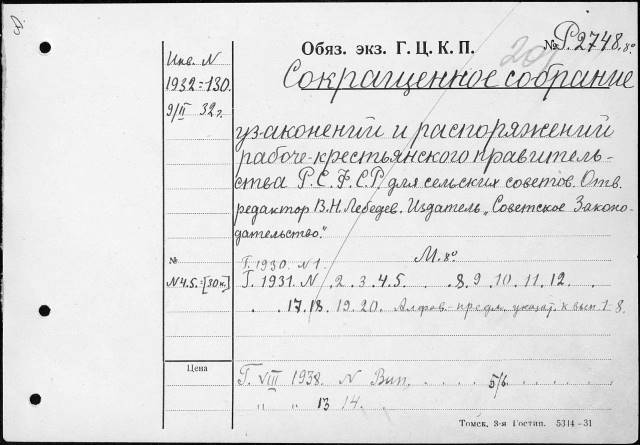 Обяз. экз. Г. Ц. К. П.
№ Р.2748. 8°
Инв. N
1932=130.
9/II 32 г.
Сокращенное собрание
узаконений и распоряжений
рабоче-крестьянского правитель-
ства Р.С.Ф.С.Р. для сельских советов. Отв.
редактор В.Н.Лебедев. Издатель „Советское Законо-
дательство."
М. 8°
№
Г. 1930. N 1.
N 4.5.=[30к.]
Г. 1931. N . 2. 3. 4. 5. . . 8. 9. 10. 11. 12. .
. . 17. 18. 19. 20. Алфав.-предм. указат. к вып. 1-8.
Цена
Г. VIII 1938. N Вып. . . . . 5/6. . . . . .
„ „ 13 14.
Томск, 3-я Гостип. 5314-31